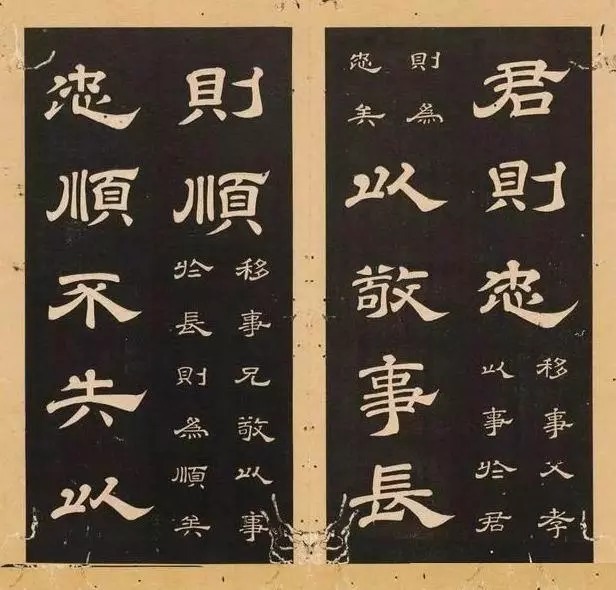 君則忠移事父孝
以事於君
則為
忠矣
以敬事長
則順移事兄敬以事
於長則為順矣
忠順不失以